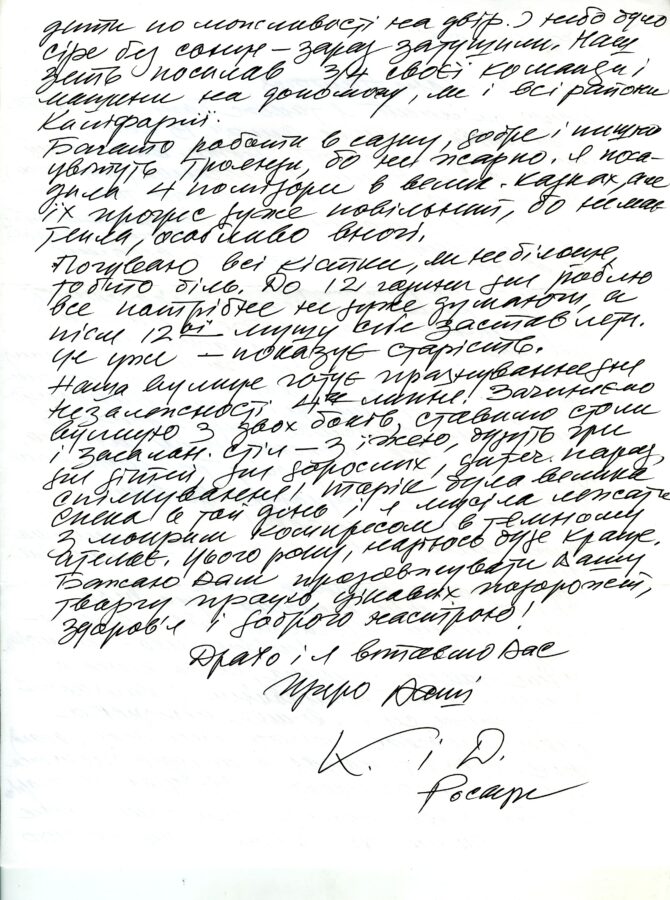 дити по можливості на двір.) небо було
сіре без сонця – зараз затушили. Наш
зять посилав 34 своєї команди і
машини на допомогу, як і всі райони
Каліфорнії.
Багато роботи в садку, добре і пишно
цвітуть троянди, бо не жарко. Я поса-
дила 4 помідори в велик. казках, але
їх прогрес дуже повільний, бо немає
тепла, особливо вночі.
всі кістки,
То біль. До 12 години дня роблю
все потрібне не дуже думаючи, а
після 12ої мушу себе заставляти.
Це уже – показує старість.
Наша вулиця готує празнування дня
незалежності 4го липня. Зачиняємо
вулицю з двох боків, ставимо столи
і стіл – з їжею, будуть ігри
для дітей, для дорослих, дитяч. парад,
спілкування, торік була велика
спека в той день і я мусіла лежати
з мокрим компресом в темному
ательє. Цього року, надіюсь буде краще.
Бажаю Вам продовжувати Вашу
творчу працю, цікавих подорожей,
здоров'я і доброго настрою!
Драго і я вітаємо Вас
Щиро Ваші
К. і Д.